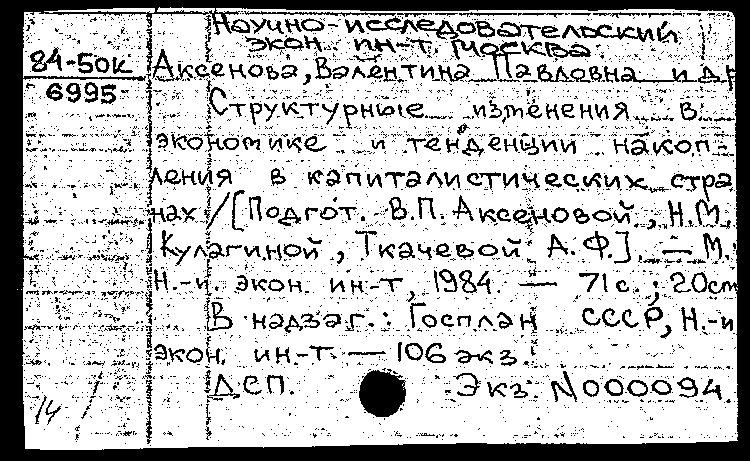 Научно-исследовательский
экон. ин-т. Москва
84-50к
6995
Аксенова, Валентина Павловна и др
Структурные изменения в
экономике и тенденции накоп-
ления в капиталистических стра
нах / [Подгот. В.П. Аксеновой, Н.М.
Кулагиной, Ткачевой А.Ф.]. — М.:
Н.-и. экон. ин-т, 1984. — 71 с.; 20см
В надзаг.: Госплан СССР, Н.-и
экон. ин-т. — 106 экз.
ДСП. Экз. N000094.
14